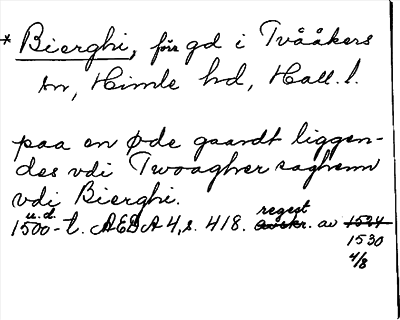 * Bierghi, förr gd i Tvååkers
sn, Himle hd, Hall. l.
paa en øde gaardt liggen-
des vdi Twoagher soghenn
vdi Bierghi.
u.d. regest
1500-t. AEDA 4, s. 418. avskr. av 1524
1530
4/8